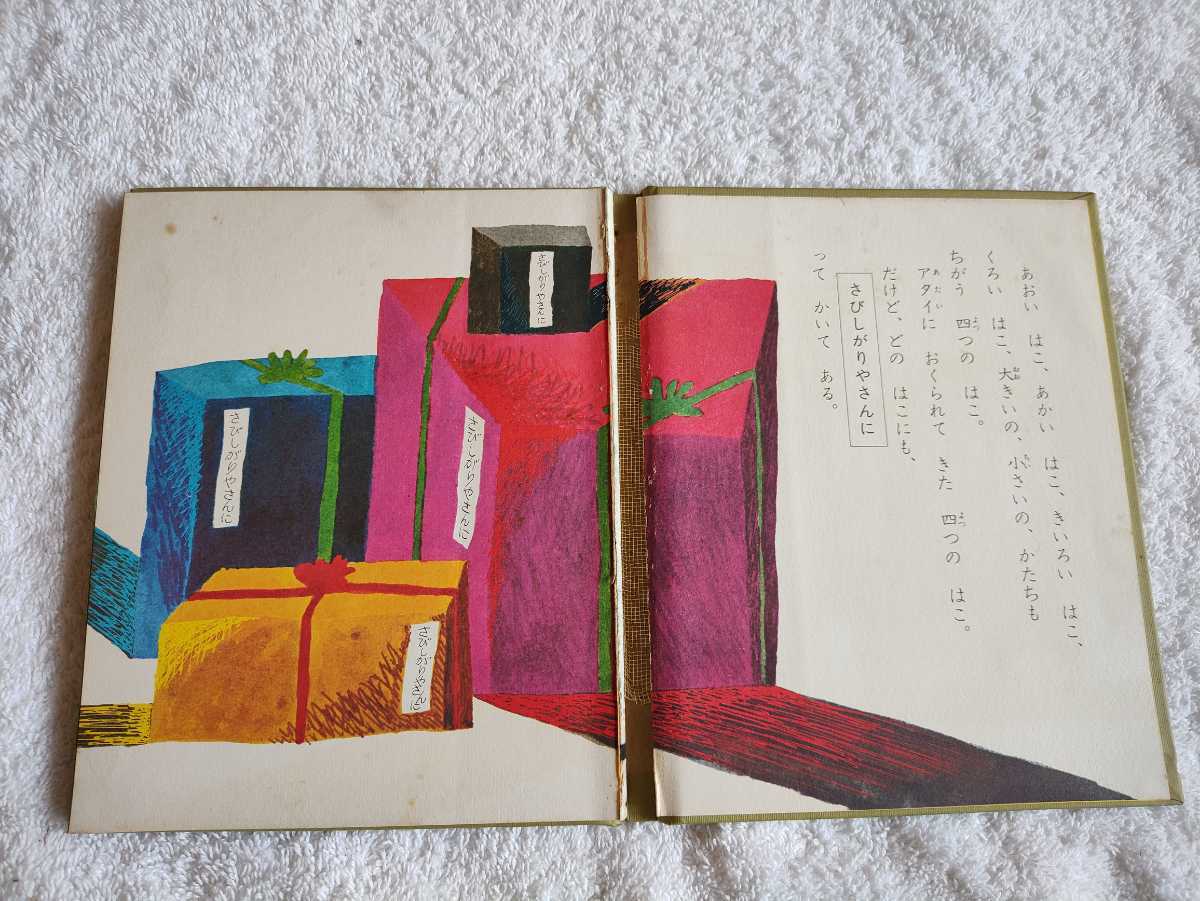 あおい　はこ、あかい　はこ、きいろい　はこ、
くろい　はこ、大きいの、小さいの、かたちも
ちがう　四つの　はこ。
アタイに　おくられて　きた　四つの　はこ。
だけど、どの　はこにも、
さびしがりやさんに
って　かいて　ある。
さびしがりやさんに
さびしがりやさんに
さびしがりやさんに
さびしがりやさんに